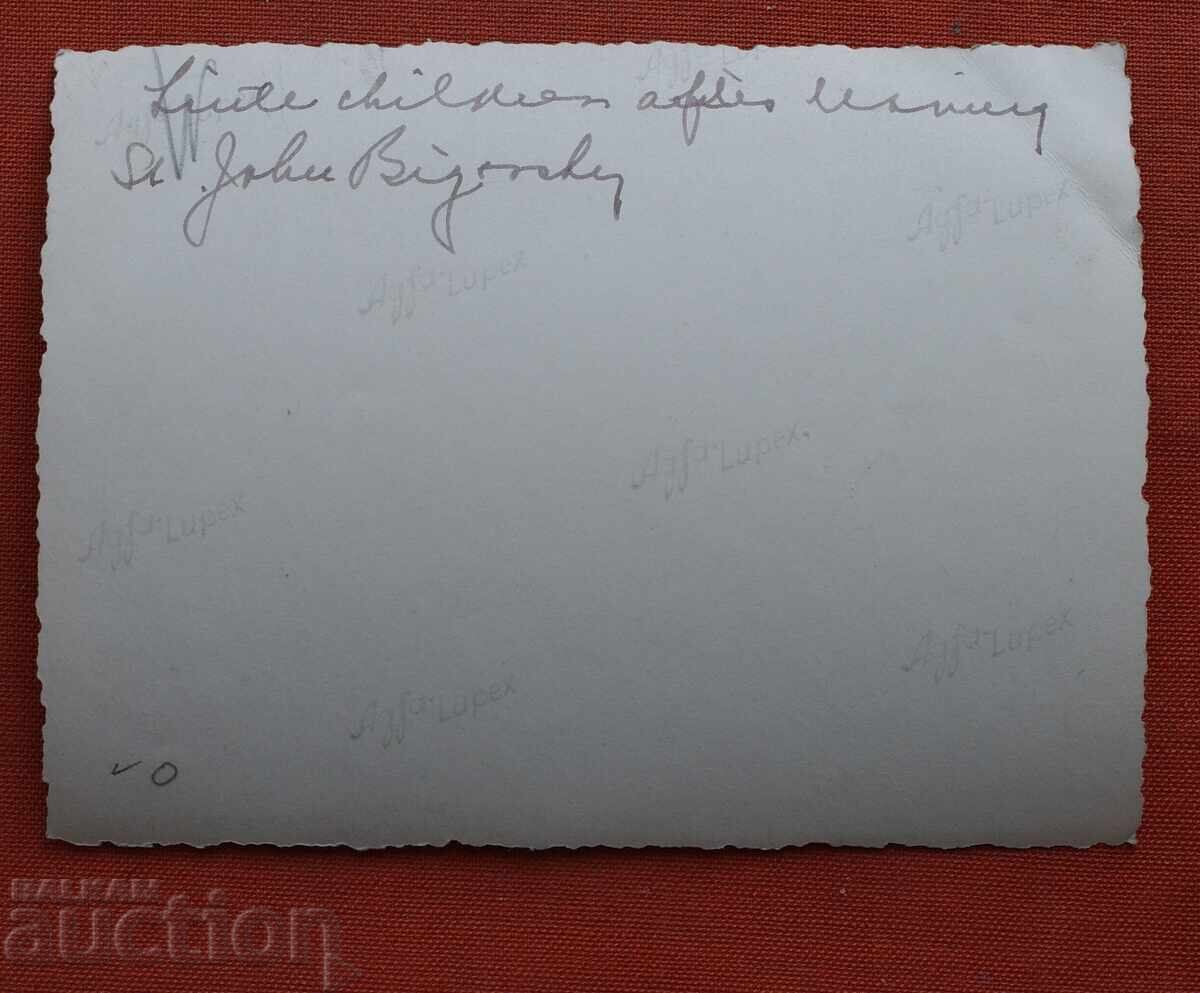 Little children after leaving
St. John Bigorsky
Agfa-Lupex
Agfa-Lupex
Agfa-Lupex
Agfa-Lupex
Agfa-Lupex
Agfa-Lupex
✓ O
BALKAN
auction